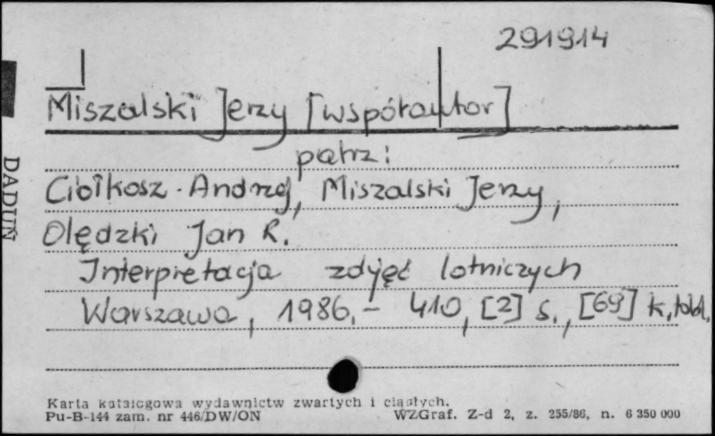 291914
Miszalski Jerzy [współautor]
patrz:
Ciołkosz Andrzej, Miszalski Jerzy,
Olędzki Jan R.
Interpretacja zdjęć lotniczych
Warszawa, 1986, - 410, [2] s., [69] k. tabl.
DADUŃ
Karta katalogowa wydawnictw zwartych i ciągłych.
Pu-B-144 zam. nr 446/DW/ON WZGraf. Z-d 2, z. 255/86, n. 6 350 000